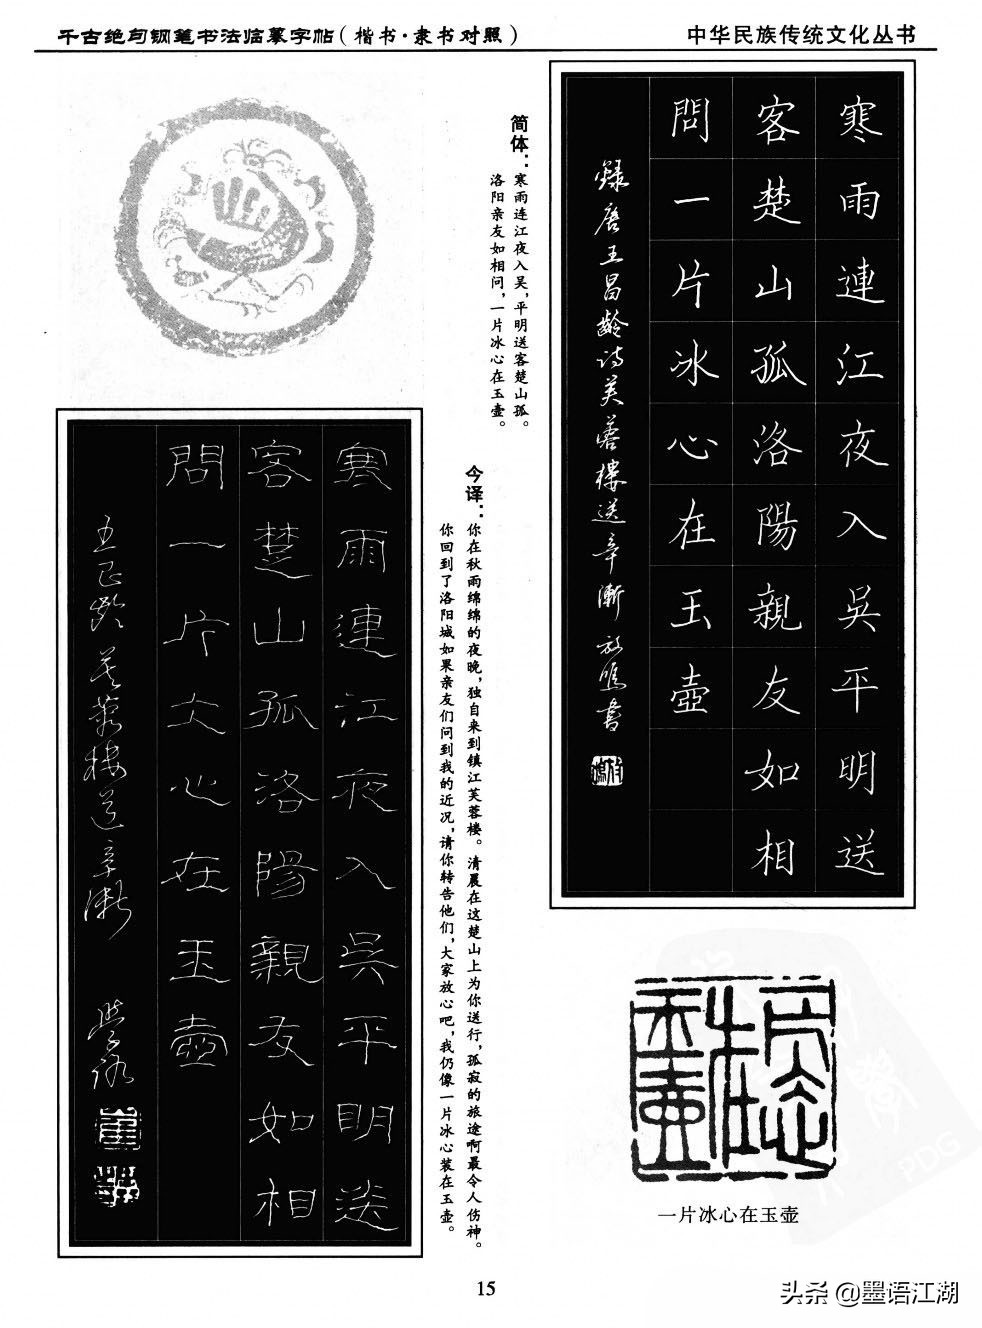 千古绝句钢笔书法临摹字帖（楷书·隶书对照）
中华民族传统文化丛书
寒雨連江夜入吳平明送
客楚山孤洛陽親友如相
問一片冰心在玉壺
錄唐王昌齡诗芙蓉樓送辛漸 放鳴書
简体：
寒雨连江夜入吴，平明送客楚山孤。
洛阳亲友如相问，一片冰心在玉壶。
今译：
你在秋雨绵绵的夜晚，独自来到镇江芙蓉楼。清晨在这楚山上为你送行，孤寂的旅途啊最令人伤神。
你回到了洛阳城如果亲友们问到我的近况，请你转告他们，大家放心吧，我仍像一片冰心装在玉壶。
寒雨連江夜入吳平明送
客楚山孤洛陽親友如相
問一片仌心在玉壺
芙蓉樓送辛漸
一片冰心在玉壶
15
PDG
头条@墨语江湖